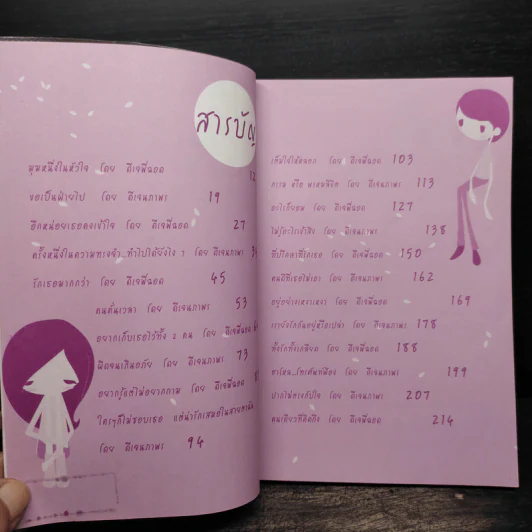 สารบัญ
มุมหนึ่งในหัวใจ โดย ดีเจพี่ฉอด 12
ขอเป็นฝ่ายไป โดย ดีเจนภาพร 19
อีกหน่อยเธอคงเข้าใจ โดย ดีเจพี่ฉอด 27
ครั้งหนึ่งในความทรงจำ...ทำไปได้ยังไง ? โดย ดีเจนภาพร
รักเธอมากกว่า โดย ดีเจพี่ฉอด 45
คนคั่นเวลา โดย ดีเจนภาพร 53
อยากเก็บเธอไว้ทั้ง 2 คน โดย ดีเจพี่ฉอด
ผิดจนเกินอภัย โดย ดีเจนภาพร 73
อยากรู้แต่ไม่อยากถาม โดย ดีเจพี่ฉอด
ใครๆก็ไม่ชอบเธอ แต่น่ารักเสมอในสายตาฉัน
โดย ดีเจนภาพร 94
เต็มใจให้หลอก โดย ดีเจพี่ฉอด 103
กรรม หรือ พรหมลิขิต โดย ดีเจนภาพร 113
อะไรก็ยอม โดย ดีเจพี่ฉอด 127
โดย ดีเจนภาพร 138
ที่ปรึกษาที่เธอรัก โดย ดีเจพี่ฉอด 150
คนดีที่เธอไม่เอา โดย ดีเจนภาพร 162
อยู่อย่างเหงาเหงา โดย ดีเจพี่ฉอด 169
เรายังรักกันอยู่หรือเปล่า โดย ดีเจนภาพร 178
ทั้งรักทั้งเกลียด โดย ดีเจพี่ฉอด 188
โดย ดีเจนภาพร 199
ปากไม่ตรงกับใจ โดย ดีเจนภาพร 207
คนเดียวที่คิดถึง โดย ดีเจพี่ฉอด 214